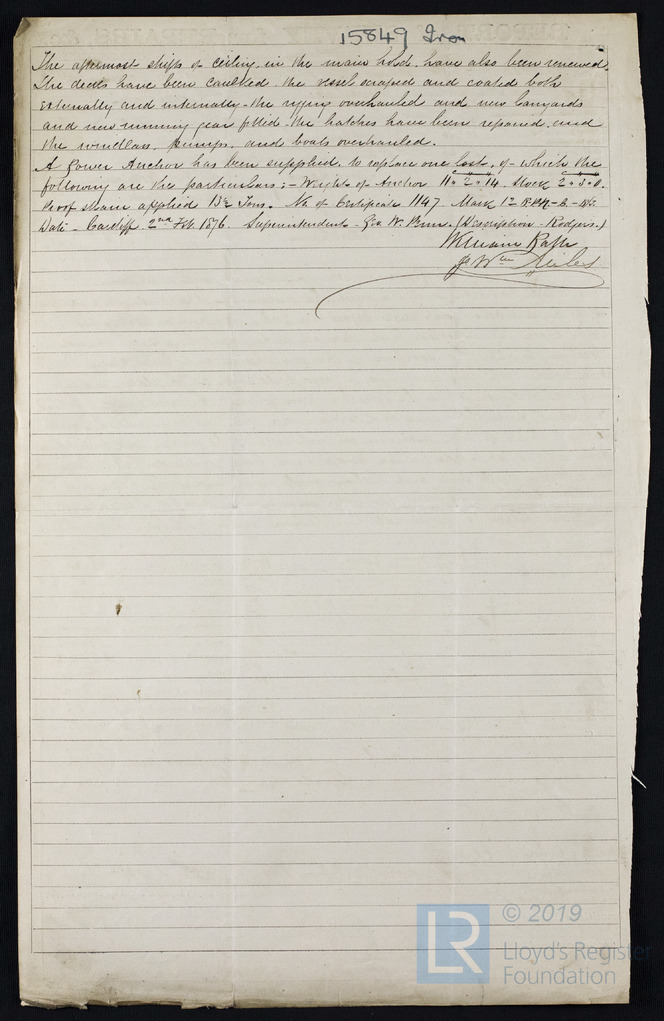 15849 Iron
The aftermost shifts of ceiling in the main hold have also been renewed.
The decks have been caulked the vessel scraped and coated both
externally and internally - the rigging overhauled and new lanyards
and new running gear fitted. the hatches have been repaired and
the windlass, pumps, and boats overhauled.
A Bower Anchor has been supplied, to replace one lost, of which the
following are the particulars :- Weight of Anchor 11. 2. 14. Stock 2. 3. 0.
Proof strain applied Tons. No of Certificate 1147. Mark 12
Date - Cardiff 2nd Feb. 1876. Superintendent - Geo W. Penn. (Description - Rodgers.)
William
Wm
© 2019
LR
Lloyd's Register
Foundation